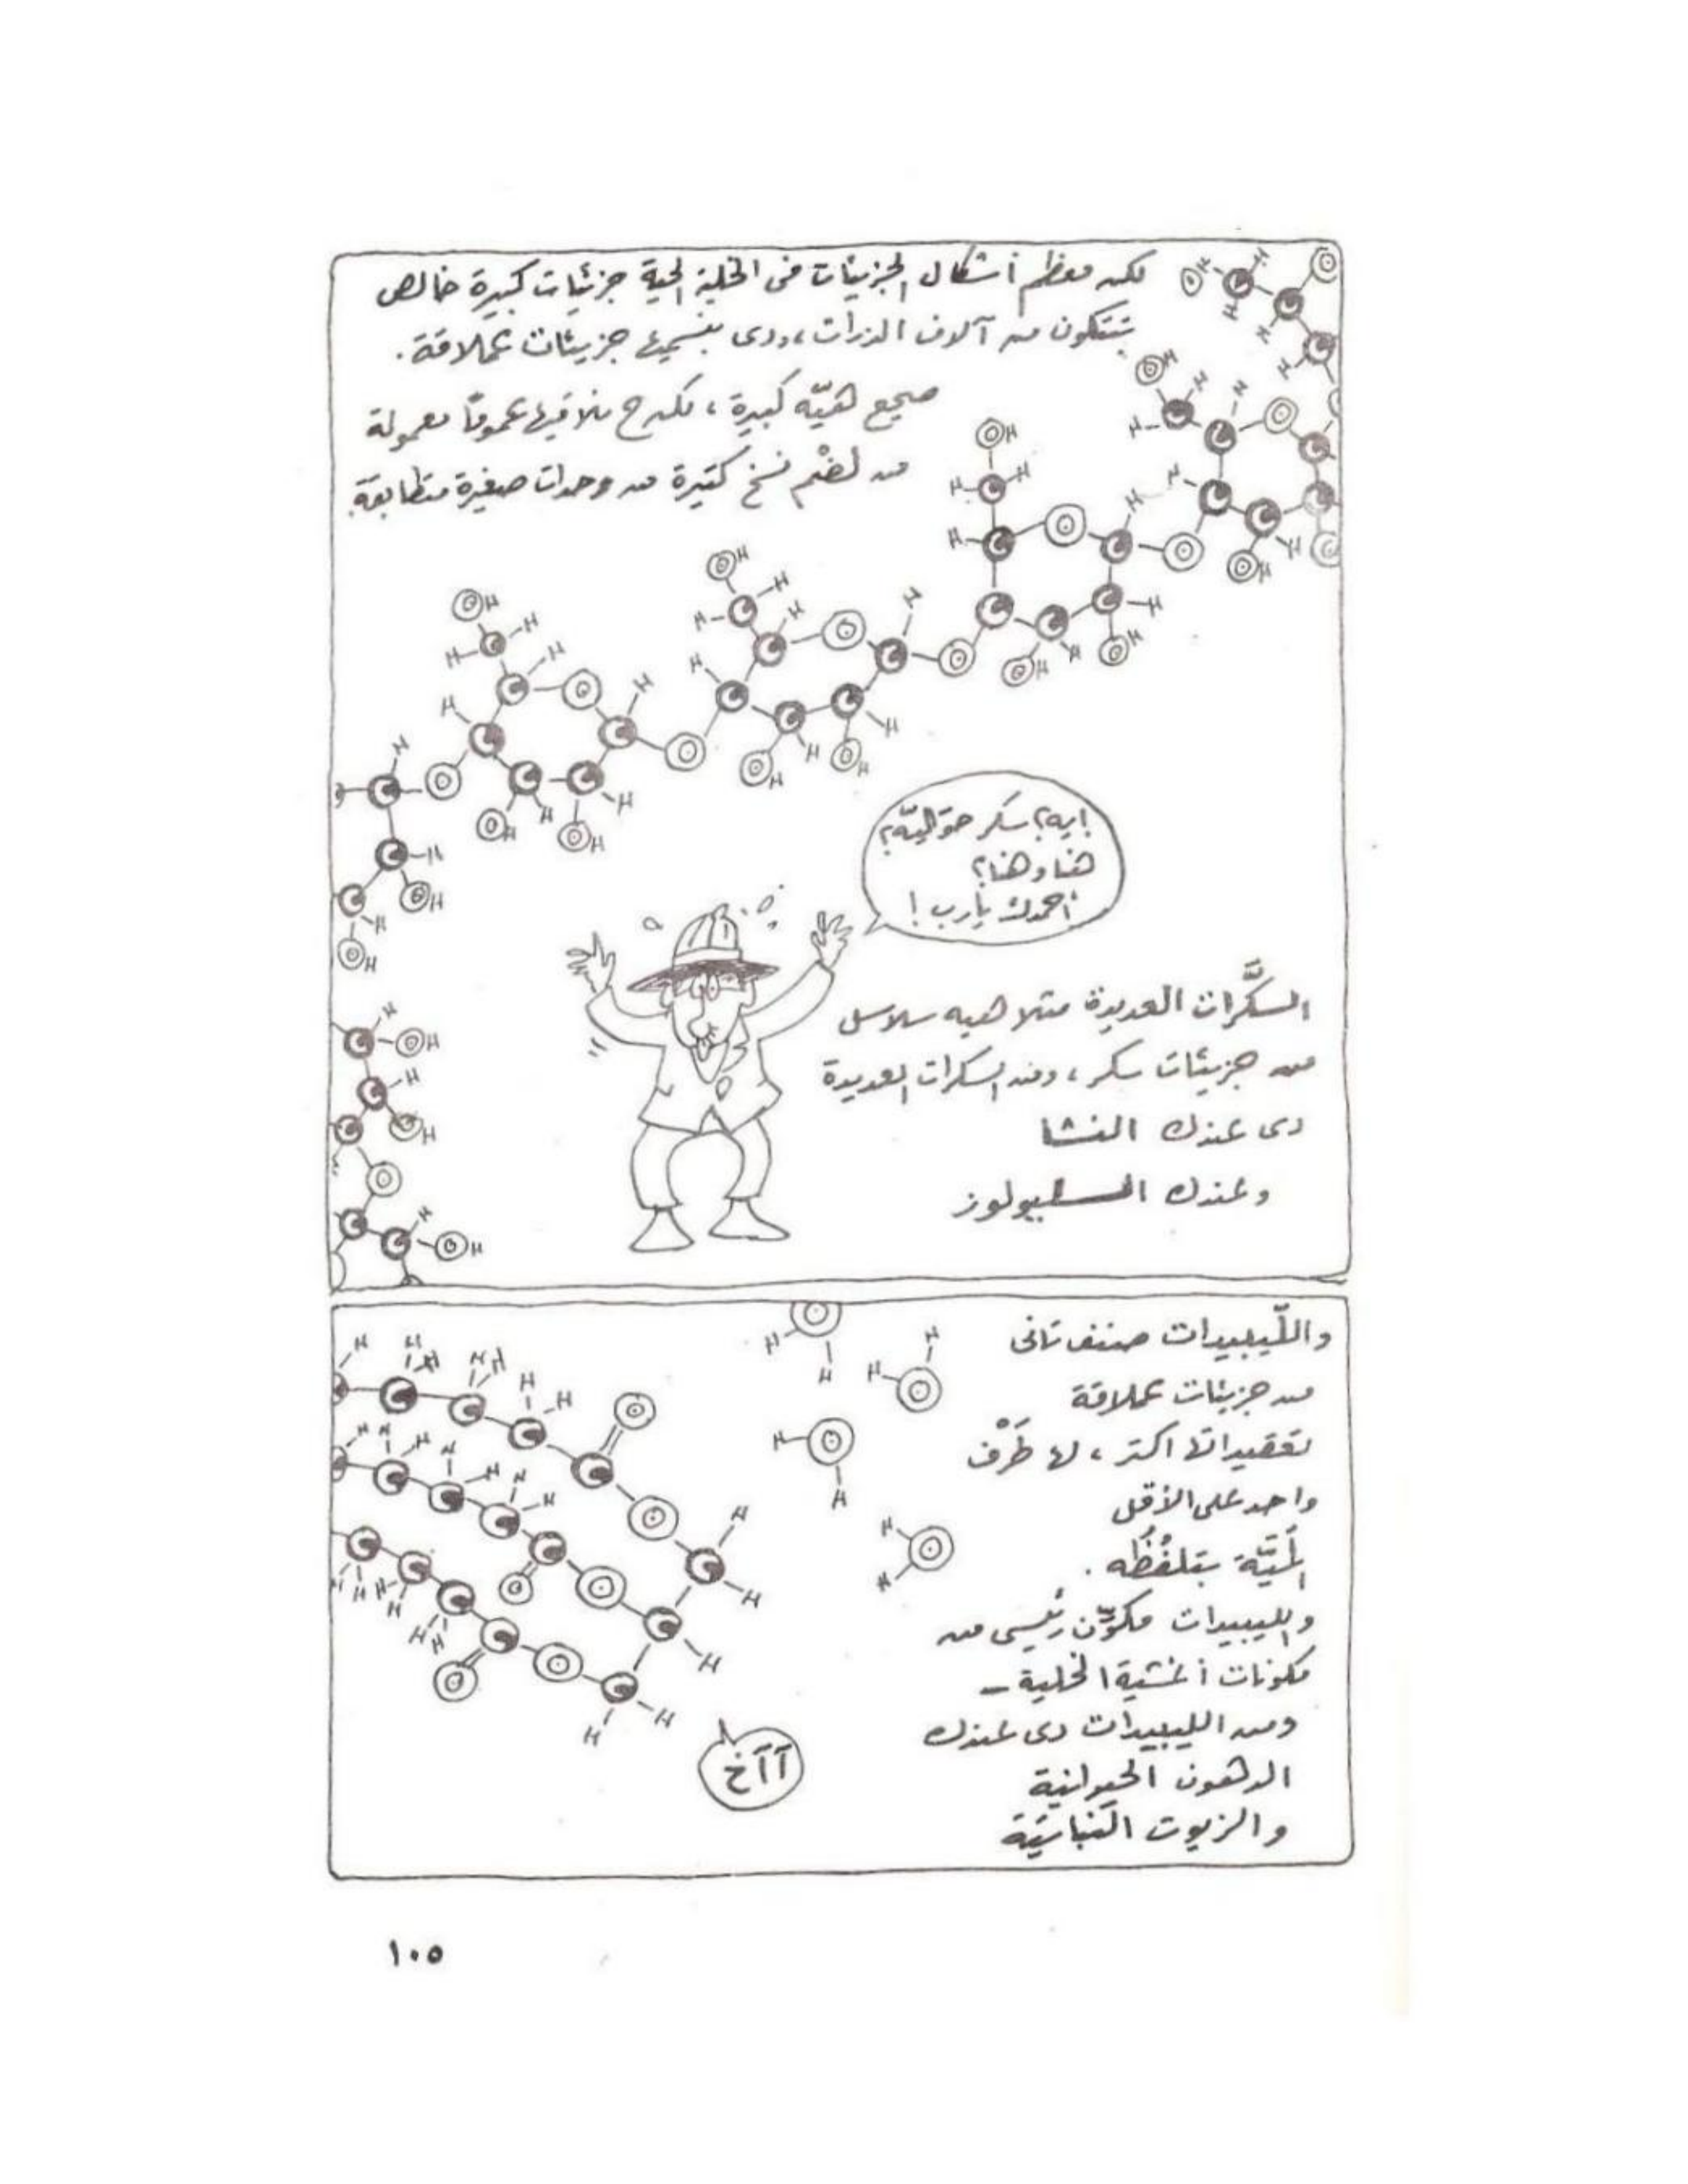 لكن معظم أشكال الجزيئات فى الخلية الحية جزئيات كبيرة خالص
بتتكون من آلاف الذرات، ودى بنسميها جزيئات عملاقة.
صحيح هىّه كبيرة، لكن ح نلاقيها عمومًا معمولة
من لضْم نسخ كتيرة من وحدات صغيرة متطابقة.
إيه؟ سكر حوّاليّه؟
هنا وهنا؟
أحمدك يارب!
السكَّرات العديدة مثلا هيه سلاسل
من جزيئات سكر، ومن السكرات العديدة
دى عندك النشا
وعندك السليولوز
واللّيبيدات صنف تانى
من جزيئات عملاقة
تعقيداتها اكتر، لها طَرْف
واحد على الأقل
الميّة بتلفُظُه.
والليبيدات مكوّن رئيسى من
مكونات أغشية الخلية –
ومن الليبيدات دى عندك
الدهون الحيوانية
والزيوت النباتيّة
آآخ
١٠٥